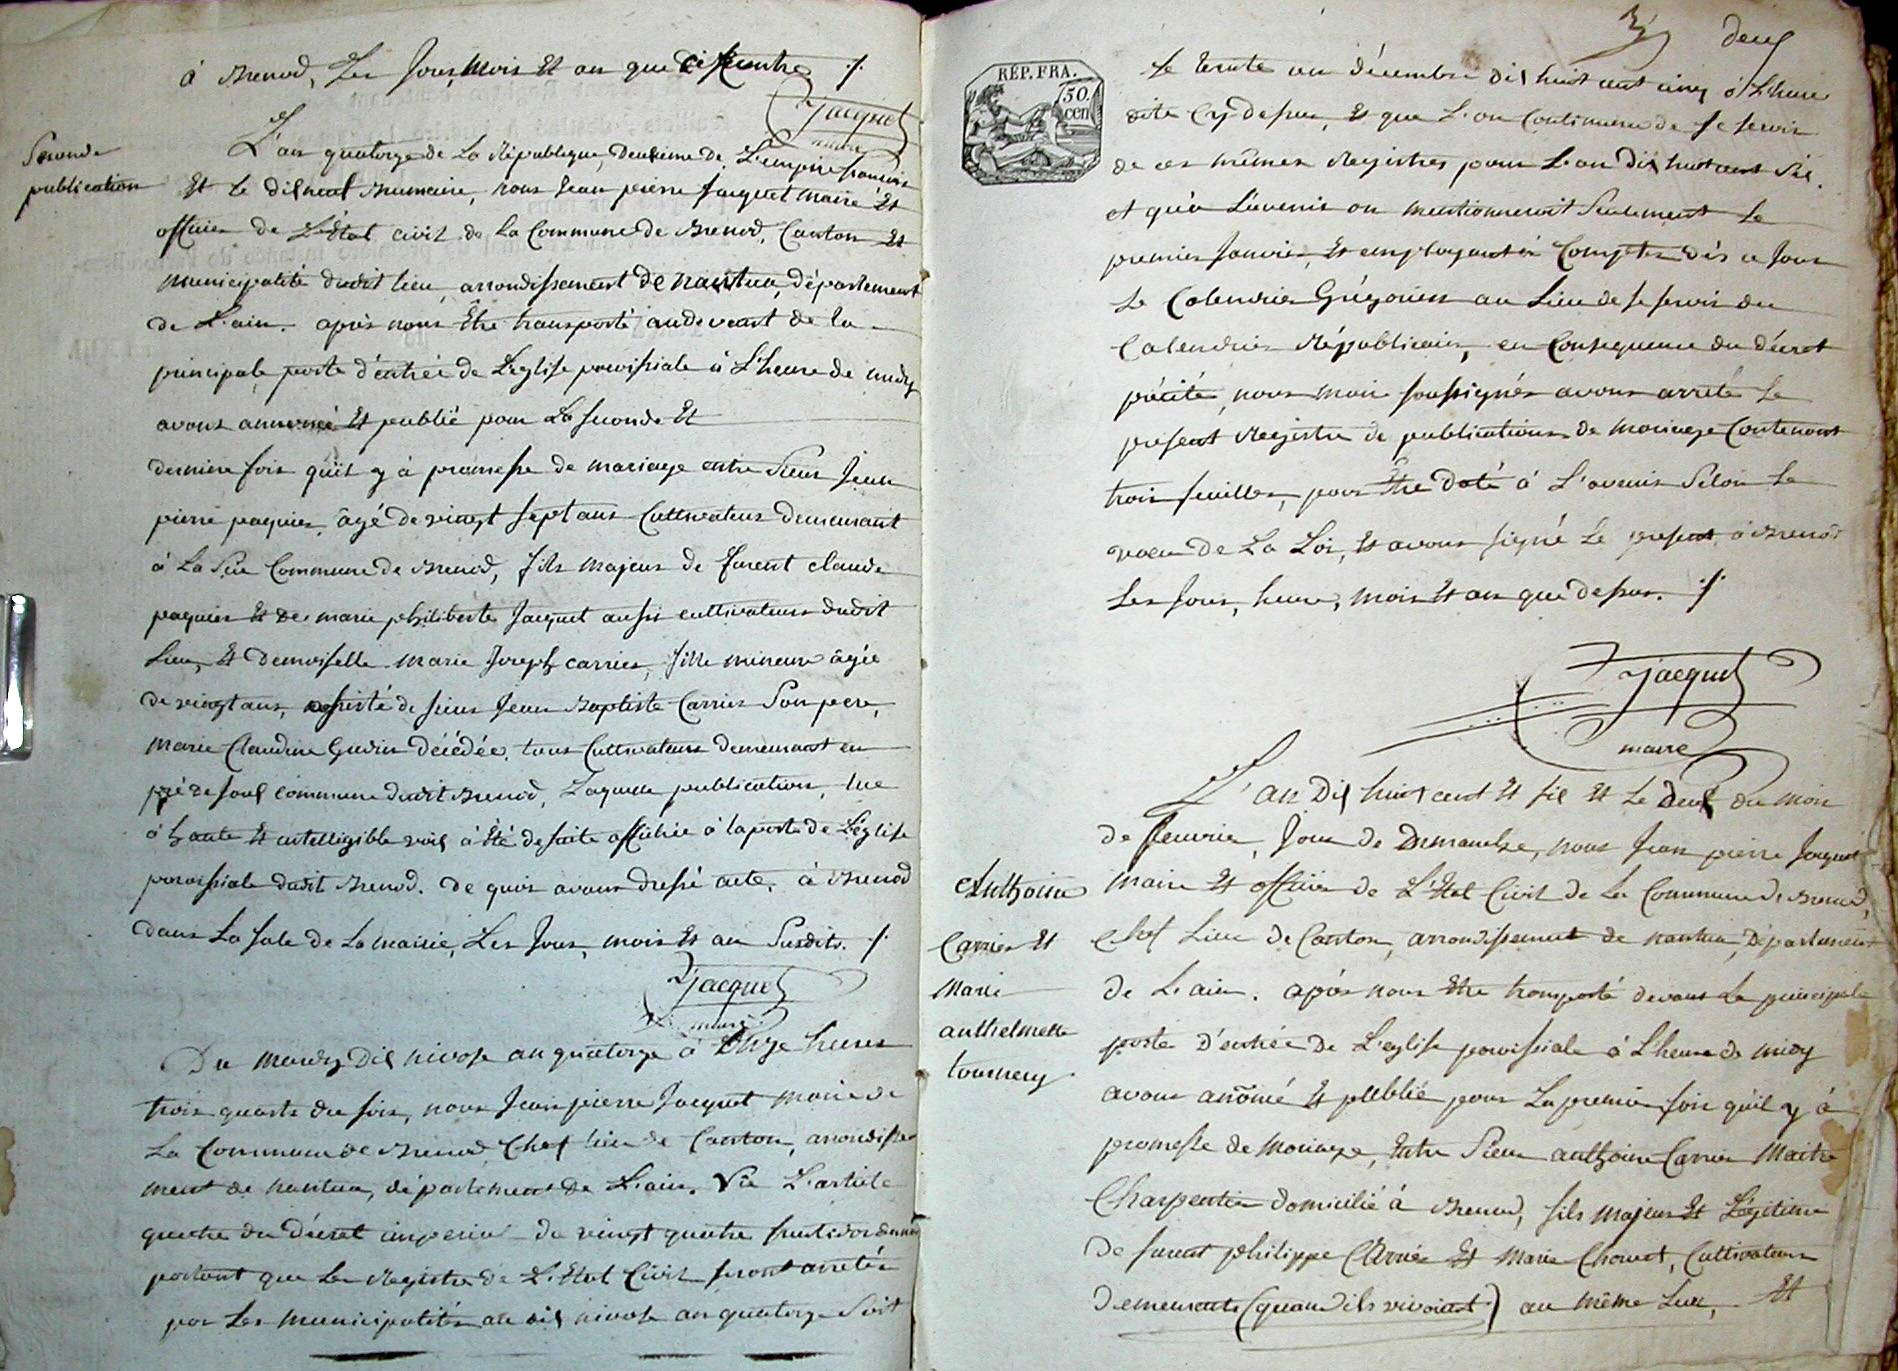 à Brenod, Les Jour, Mois Et an que ci contre ./.
Jacquet
maire
Seconde
publication
L'an quatorze de La République, deuxième de L'empire francais
Et Le dix neuf Brumaire, nous Jean pierre Jacquet Maire Et
officier de L'Etat civil de la Commune de Brenod, Canton Et
Municipalité dudit lieu, arrondissement de nantua, département
de L'ain. après nous Etre transporté audevant de la
principale porte d'entrée de L'eglise paroissiale à L'heure de midy
avons annoncé Et publié pour La seconde Et
dernière fois qu'il y à promesse de mariage entre Sieur Jean
pierre paquier, âgé de vingt sept ans Cultivateur demeurant
à La Commune de Brenod, fils Majeur de furent claude
paquier Et de marie philiberte Jacquet aussi cultivateurs dudit
Lieu, Et Demoiselle Marie Joseph carrier, fille mineure âgée
de vingt ans, assisté de sieur Jean Baptiste Carrier Son pere,
Marie Claudine Gudin décédée, tous Cultivateurs demeurant en
commune dudit Brenod, Laquelle publication, lue
à haute Et intelligible voix à été de suite affichée à la porte de L'eglise
paroissiale dudit Brenod. De quoi avons dressé acte. à Brenod
dans La sale de La mairie, Les Jour, mois Et an Susdits. ./.
Jacquet
maire
Du mardy Dix nivose an quatorze à Onze heures
trois quarts du soir, nous Jean pierre Jacquet maire de
La Commune de Brenod Chef lieu de Canton, arrondisse
ment de nantua, département de L'ain. Vu L'article
quatre du décret imperial de vingt quatre fructidor dernier
portant que Les Registres de L'Etat Civil seront arretés
par Les Municipalités au dix nivose an quatorze Soit
3 deux
RÉP. FRA.
50
cen
Le trente un décembre dix huit cent cinq à L'heure
dite Cy dessus, Et que L'on Continuera de se servir
de ces mêmes Registres pour L'an dix huit cent Six.
et qu'à L'avenir on mentionneroit Seulement Le
premier Janvier, Et employant à Compter dès ce Jour
Le Calendrier Grégorien au Lieu de se servir du
Calendrier Républicain, en Consequence du décret
précité, nous maire soussignés avons arrêté Le
present Registre de publications de Mariage Contenant
trois feuilles, pour Etre daté à L'avenir Selon Le
voeu de La Loi, Et avons signé Le present à Brenod
Les Jour, heure, mois Et an que dessus. ./.
Jacquet
maire
L'an Dix huit cent Et six Et Le deux du mois
de feuvrier, Jour de Dimanche, nous Jean pierre Jacquet
Maire Et officier de L'Etat Civil de La Commune de Brenod,
Chef Lieu de Canton, arrondissement de nantua, Département
de L'ain. après nous Etre transporté devant La principale
porte D'entrée de L'eglise paroissiale à L'heure de midy
avons anõncé Et publié pour La premiere fois qu'il y à
promesse de Mariage, Entre Sieur anthoine Carrier Maitre
Charpentier domicilié à Brenod, fils Majeur Et Légitime
De furent philippe Carrier Et Marie Chouet, Cultivateurs
Demeurants (quand ils vivoient) au même Lieu, Et
Anthoine
Carrier Et
Marie
anthelmette
tournery